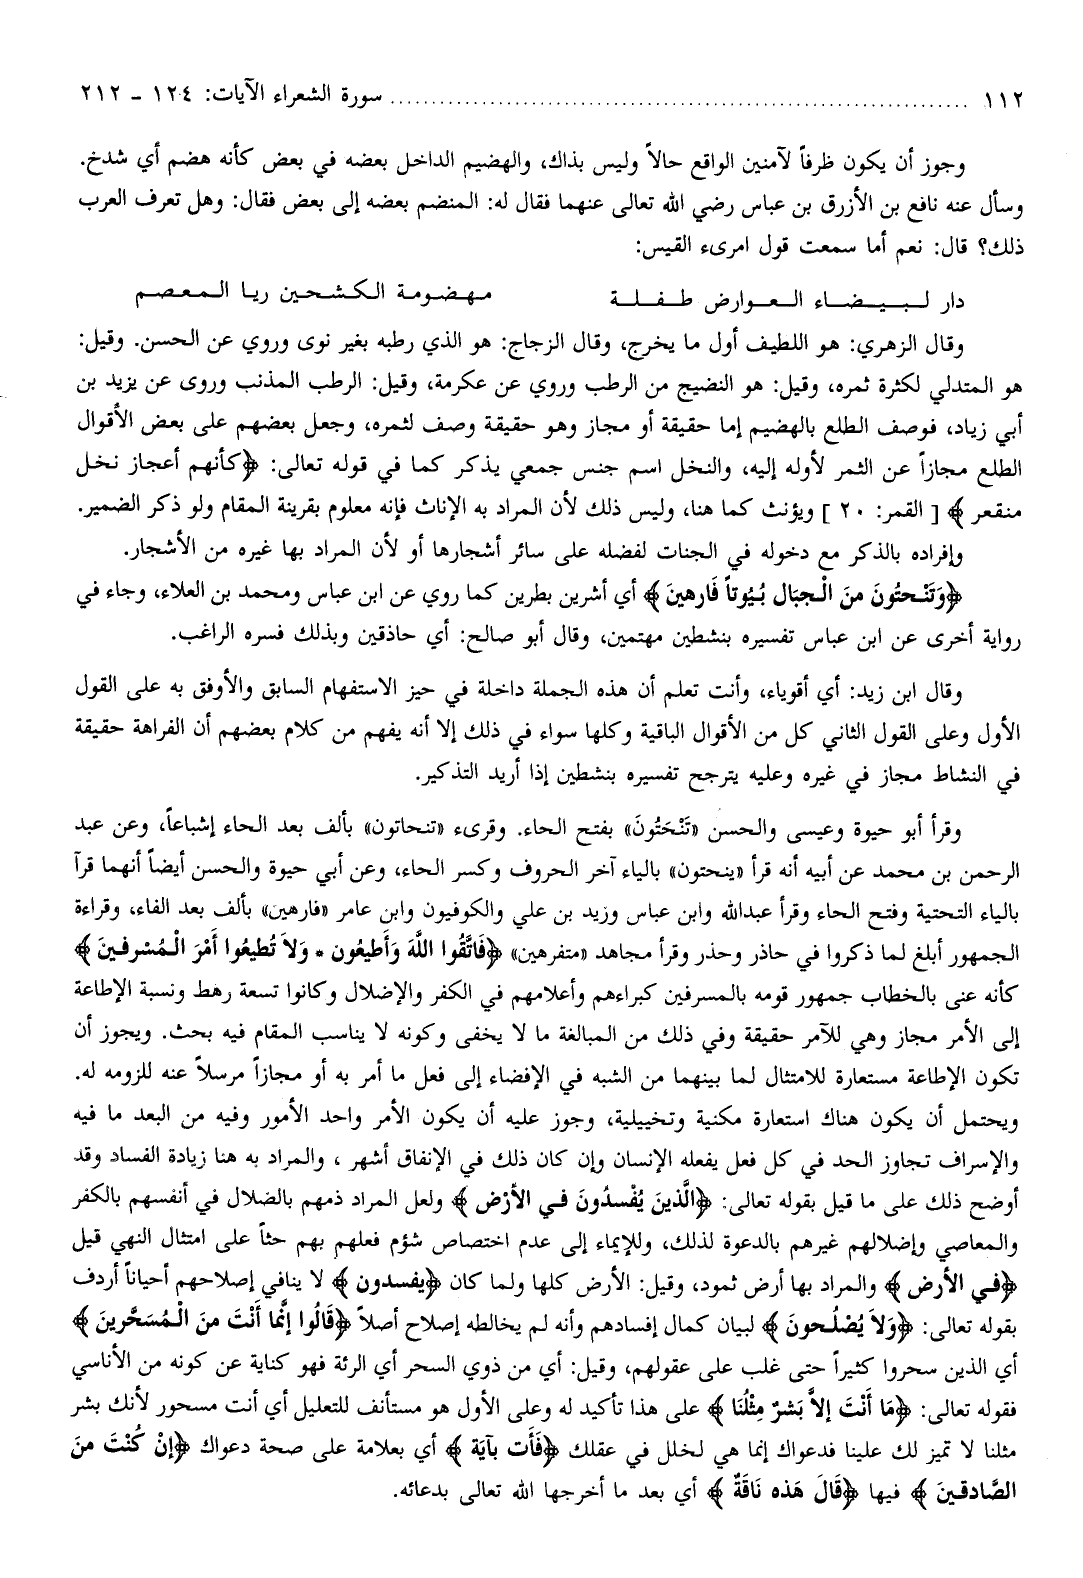 ١١٢ ........................................ سورة الشعراء الآيات: ١٢٤ - ٢١٢
وجوز أن يكون ظرفاً لآمنين الواقع حالاً وليس بذاك، والهضيم الداخل بعضه في بعض كأنه هضم أي شدخ.
وسأل عنه نافع بن الأزرق بن عباس رضي الله تعالى عنهما فقال له: المنضم بعضه إلى بعض فقال: وهل تعرف العرب
ذلك؟ قال: نعم أما سمعت قول امرىء القيس:
دار لبيضاء العوارض طفلة مهضومة الكشحين ريا المعصم
وقال الزهري: هو اللطيف أول ما يخرج، وقال الزجاج: هو الذي رطبه بغير نوى وروي عن الحسن. وقيل:
هو المتدلي لكثرة ثمره، وقيل: هو النضيج من الرطب وروي عن عكرمة، وقيل: الرطب المذنب وروى عن يزيد بن
أبي زياد، فوصف الطلع بالهضيم إما حقيقة أو مجاز وهو حقيقة وصف لثمره، وجعل بعضهم على بعض الأقوال
الطلع مجازاً عن الثمر لأوله إليه، والنخل اسم جنس جمعي يذكر كما في قوله تعالى: ﴿كأنهم أعجاز نخل
منقعر﴾ [القمر: ٢٠] ويؤنث كما هنا، وليس ذلك لأن المراد به الإناث فإنه معلوم بقرينة المقام ولو ذكر الضمير.
وإفراده بالذكر مع دخوله في الجنات لفضله على سائر أشجارها أو لأن المراد بها غيره من الأشجار.
﴿وَتَنْحتُونَ منَ الْجبَال بُيُوتاً فَارهينَ﴾ أي أشرين بطرين كما روي عن ابن عباس ومحمد بن العلاء، وجاء في
رواية أخرى عن ابن عباس تفسيره بنشطين مهتمين، وقال أبو صالح: أي حاذقين وبذلك فسره الراغب.
وقال ابن زيد: أي أقوياء، وأنت تعلم أن هذه الجملة داخلة في حيز الاستفهام السابق والأوفق به على القول
الأول وعلى القول الثاني كل من الأقوال الباقية وكلها سواء في ذلك إلا أنه يفهم من كلام بعضهم أن الفراهة حقيقة
في النشاط مجاز في غيره وعليه يترجح تفسيره بنشطين إذا أريد التذكير.
وقرأ أبو حيوة وعيسى والحسن «تَنْحَتُونَ» بفتح الحاء. وقرىء «تنحاتون» بألف بعد الحاء إشباعاً، وعن عبد
الرحمن بن محمد عن أبيه أنه قرأ «ينحتون» بالياء آخر الحروف وكسر الحاء، وعن أبي حيوة والحسن أيضاً أنهما قرآ
بالياء التحتية وفتح الحاء وقرأ عبدالله وابن عباس وزيد بن علي والكوفيون وابن عامر «فارهين» بألف بعد الفاء، وقراءة
الجمهور أبلغ لما ذكروا في حاذر وحذر وقرأ مجاهد «متفرهين» ﴿فَاتَّقُوا اللَّهَ وَأَطيعُون * وَلاَ تُطيعُوا أَمْرَ الْمُسْرفينَ﴾
كأنه عنى بالخطاب جمهور قومه بالمسرفين كبراءهم وأعلامهم في الكفر والإضلال وكانوا تسعة رهط ونسبة الإطاعة
إلى الأمر مجاز وهي للآمر حقيقة وفي ذلك من المبالغة ما لا يخفى وكونه لا يناسب المقام فيه بحث. ويجوز أن
تكون الإطاعة مستعارة للامتثال لما بينهما من الشبه في الإفضاء إلى فعل ما أمر به أو مجازاً مرسلاً عنه للزومه له.
ويحتمل أن يكون هناك استعارة مكنية وتخييلية، وجوز عليه أن يكون الأمر واحد الأمور وفيه من البعد ما فيه
والإسراف تجاوز الحد في كل فعل يفعله الإنسان وإن كان ذلك في الإنفاق أشهر ، والمراد به هنا زيادة الفساد وقد
أوضح ذلك على ما قيل بقوله تعالى: ﴿الَّذينَ يُفْسدُونَ في الأَرْض﴾ ولعل المراد ذمهم بالضلال في أنفسهم بالكفر
والمعاصي وإضلالهم غيرهم بالدعوة لذلك، وللإيماء إلى عدم اختصاص شؤم فعلهم بهم حثاً على امتثال النهي قيل
﴿في الأرض﴾ والمراد بها أرض ثمود، وقيل: الأرض كلها ولما كان ﴿يفسدون﴾ لا ينافي إصلاحهم أحياناً أردف
بقوله تعالى: ﴿وَلاَ يُصْلحونَ﴾ لبيان كمال إفسادهم وأنه لم يخالطه إصلاح أصلاً ﴿قَالُوا إنَّمَا أَنْتَ منَ الْمُسَحَّرينَ﴾
أي الذين سحروا كثيراً حتى غلب على عقولهم، وقيل: أي من ذوي السحر أي الرئة فهو كناية عن كونه من الأناسي
فقوله تعالى: ﴿مَا أَنْتَ إلاَّ بَشَرٌ مِثْلُنَا﴾ على هذا تأكيد له وعلى الأول هو مستأنف للتعليل أي أنت مسحور لأنك بشر
مثلنا لا تميز لك علينا فدعواك إنما هي لخلل في عقلك ﴿فَأْت بآيَة﴾ أي بعلامة على صحة دعواك ﴿إنْ كُنْتَ منَ
الصَّادقينَ﴾ فيها ﴿قَالَ هَذه نَاقَةٌ﴾ أي بعد ما أخرجها الله تعالى بدعائه.